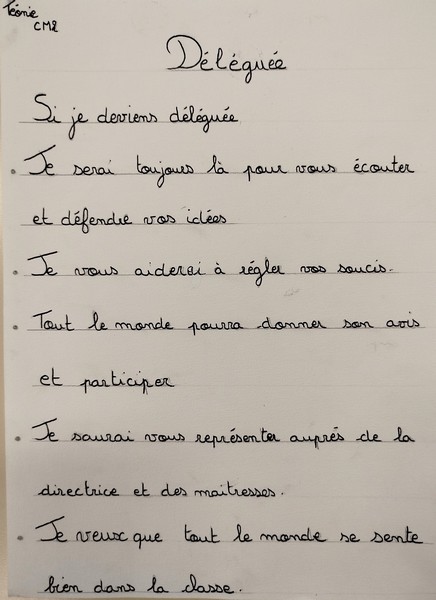 Léonie
CM2
Déléguée
Si je deviens déléguée
• Je serai toujours là pour vous écouter
et défendre vos idées
• Je vous aiderai à régler vos soucis.
• Tout le monde pourra donner son avis
et participer
• Je saurai vous représenter auprés de la
directrice et des maitresses.
• Je veux que tout le monde se sente
bien dans la classe.